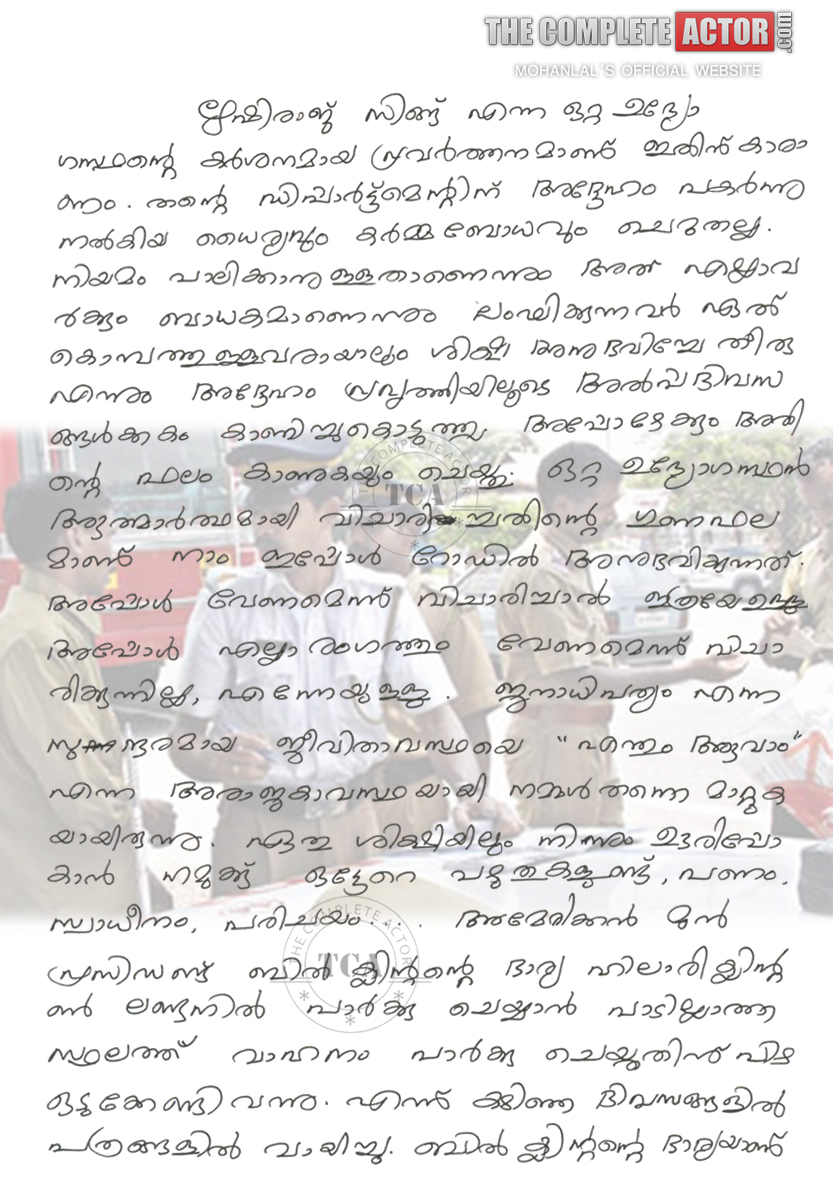 THE COMPLETE ACTOR.com
MOHANLAL'S OFFICIAL WEBSITE
ഋഷിരാജ് സിങ്ങ് എന്ന ഒറ്റ ഉദ്യോ
ഗസ്ഥന്റെ കർശനമായ പ്രവർത്തനമാണ് ഇതിന് കാരാ
ണം. തന്റെ ഡിപ്പാർട്ട്മെന്റിന് അദ്ദേഹം പകർന്നു
നൽകിയ ധൈര്യവും കർമ്മബോധവും ചെറുതല്ല.
നിയമം പാലിക്കാനുള്ളതാണെന്നും അത് എല്ലാവ
ർക്കും ബാധകമാണെന്നും ലംഘിക്കുന്നവർ ഏത്
കൊമ്പത്തുള്ളവരായാലും ശിക്ഷ അനുഭവിച്ചേ തീരൂ
എന്നും അദ്ദേഹം പ്രവൃത്തിയിലൂടെ അൽപ്പദിവസ
ങ്ങൾക്കകം കാണിച്ചുകൊടുത്തു. അപ്പോഴേക്കും അതി
ന്റെ ഫലം കാണുകയും ചെയ്തു; ഒറ്റ ഉദ്യോഗസ്ഥൻ
ആത്മാർത്ഥമായി വിചാരിച്ചതിന്റെ ഗുണഫല
മാണ് നാം ഇപ്പോൾ റോഡിൽ അനുഭവിക്കുന്നത്.
അപ്പോൾ വേണമെന്ന് വിചാരിച്ചാൽ ഇത്രയേഉള്ളൂ
അപ്പോൾ എല്ലാ രംഗത്തും വേണമെന്ന് വിചാ
രിക്കുന്നില്ല, എന്നേയുള്ളൂ. ജനാധിപത്യം എന്ന
സുന്ദരമായ ജീവിതാവസ്ഥയെ "എന്തും ആവാം"
എന്ന അരാജകാവസ്ഥയായി നമ്മൾതന്നെ മാറ്റുക
യായിരുന്നു. ഏതു ശിക്ഷയിലും നിന്നും ഊരിപ്പോ
കാൻ നമുക്ക് ഒട്ടേറെ പഴുതുകളുണ്ട്, പണം,
സ്വാധീനം, പരിചയം.... അമേരിക്കൻ മുൻ
പ്രസിഡണ്ട് ബിൽ ക്ലിന്റന്റെ ഭാര്യ ഹിലാരി ക്ലിന്റ
ൺ ലണ്ടനിൽ പാർക്കു ചെയ്യാൻ പാടില്ലാത്ത
സ്ഥലത്ത് വാഹനം പാർക്കു ചെയ്തതിന് പിഴ
ഒടുക്കേണ്ടി വന്നു. എന്ന് കഴിഞ്ഞ ദിവസങ്ങളിൽ
പത്രങ്ങളിൽ വായിച്ചു. ബിൽ ക്ലിന്റന്റെ ഭാര്യയാണ്
THE COMPLETE ACTOR
TCA
THE COMPLETE ACTOR
TCA